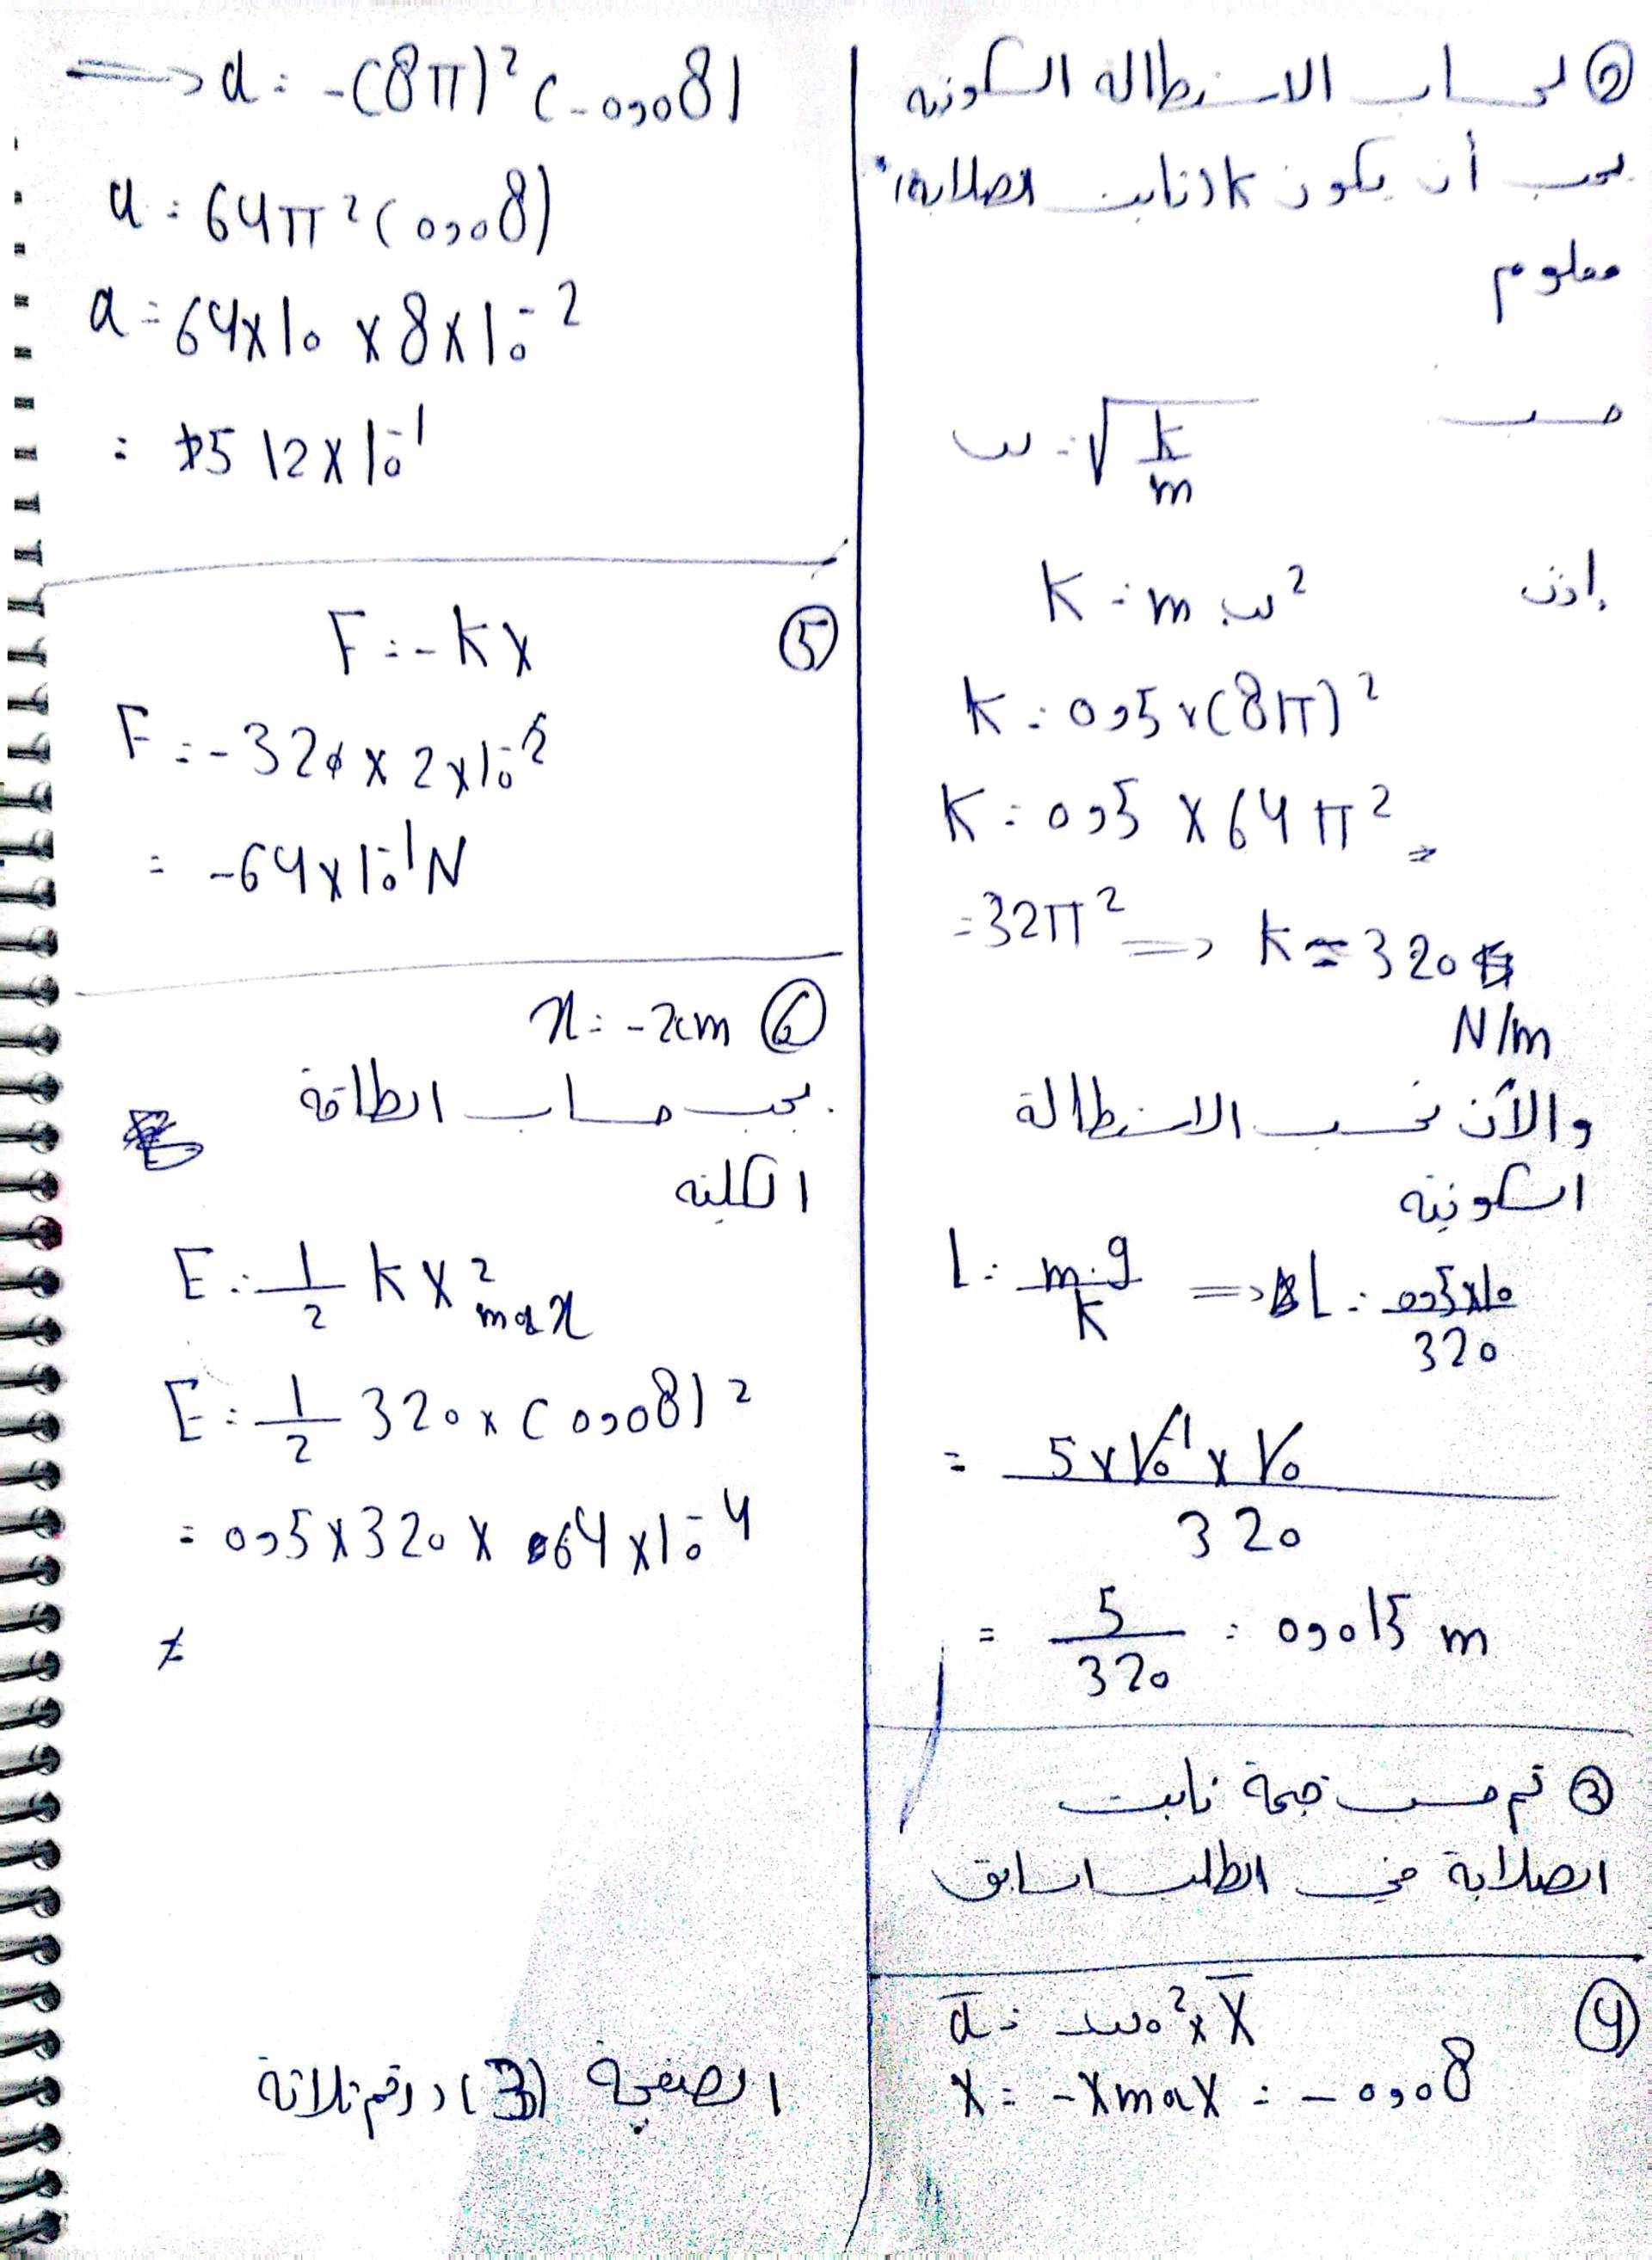 ② لحساب الاستطالة السكونية
يجب أن يكون k (ثابت الصلابة)
معلوم
حسب
ω = √(k/m)
إذن
K = m ω²
K = 0,5 × (8π)²
K = 0,5 × 64 π² =
= 32π² => k ≈ 320
N/m
والآن نحسب الاستطالة
السكونية
L = m.g/k => L = 0,5×10/320
= 5×10⁻¹×10/320
= 5/320 = 0,015 m
③ تم حسب قيمة ثابت
الصلابة في الطلب السابق
④
a̅ = -ω₀² × X̅
X = -Xmax = -0,08
=> a = -(8π)² (-0,08)
a = 64π² (0,08)
a = 64×10 × 8×10⁻²
= 512×10⁻¹
⑤ F = -kX
F = -320 × 2×10⁻²
= -64×10⁻¹ N
⑥ x = -2cm
يجب حساب الطاقة
الكلية
E = 1/2 k X²max
E = 1/2 320 × (0,08)²
= 0,5×320× 64×10⁻⁴
الصفحة (3) (رقم ثلاثة